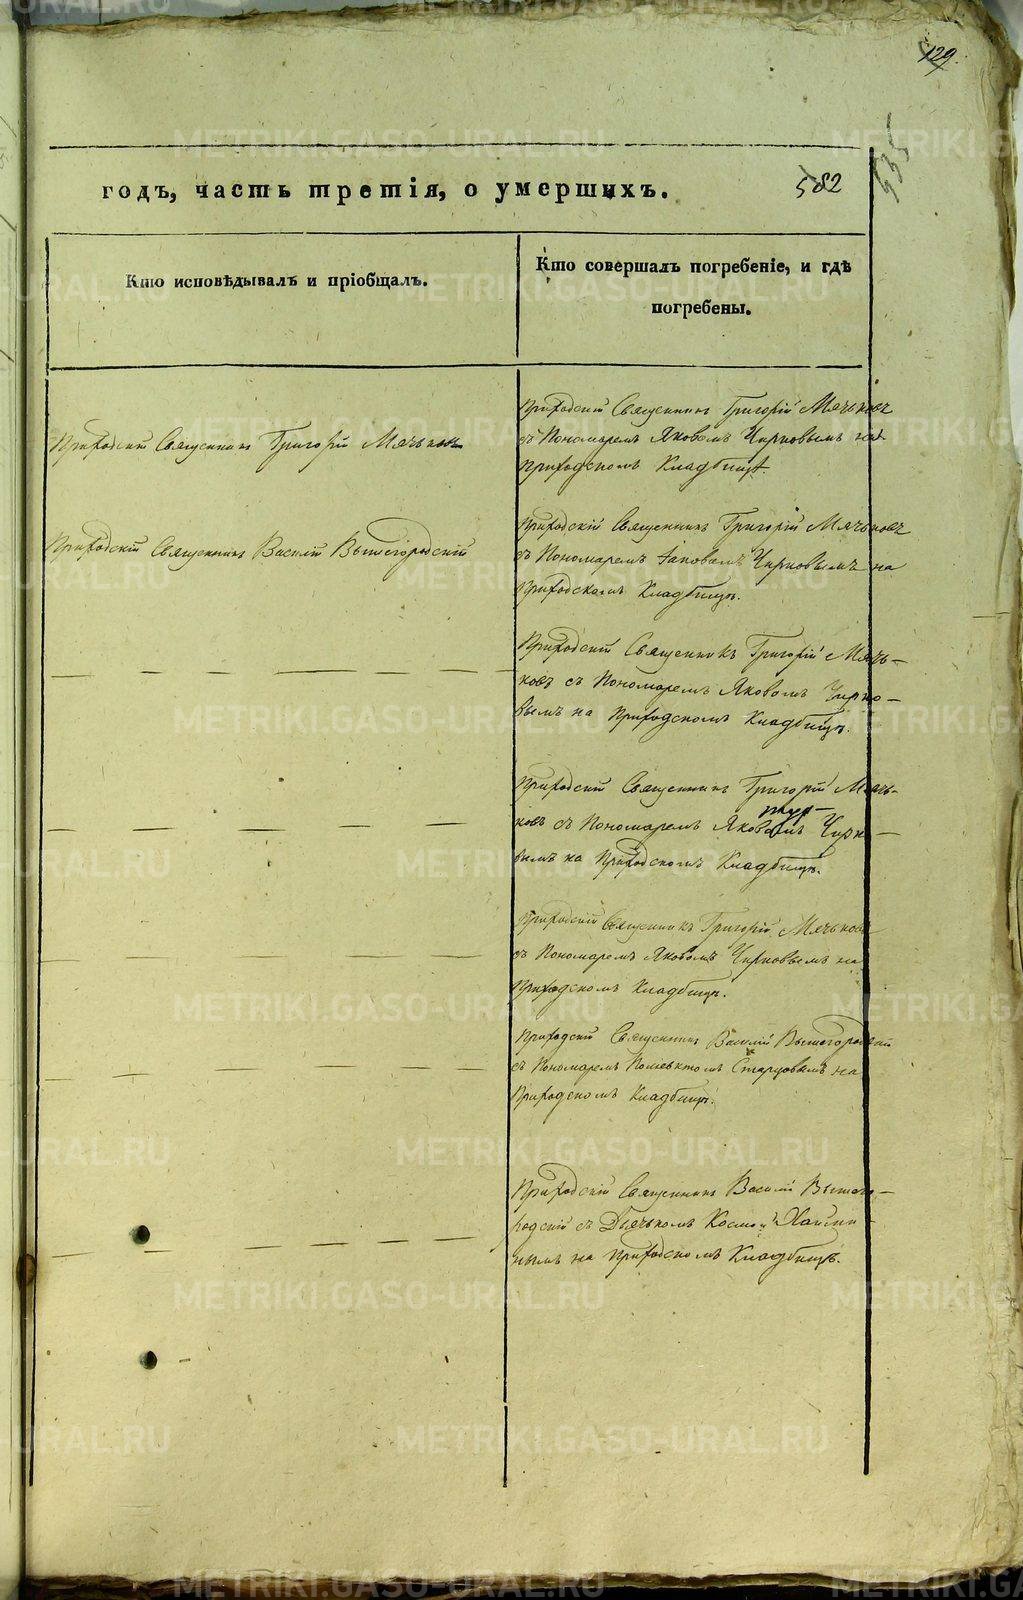 129.
535
годъ, часть третія, о умершихъ.
582
Кто исповѣдывалъ и пріобщалъ.
Кто совершалъ погребеніе, и гдѣ
погребены.
Приходскій Священникъ Григорій Мячьковъ
Приходскій Священникъ Григорій Мячьковъ
съ Пономаремъ Яковомъ Чирковымъ на
приходскомъ Кладбищѣ.
Приходскій Священникъ Василій Вышегородскій
Приходскій Священникъ Григорій Мячьковъ
съ Пономаремъ Іаковомъ Чирковымъ на
Приходскомъ Кладбищѣ.
Приходскій Священникъ Григорій Мячь-
ковъ съ Пономаремъ Яковомъ Чирко-
вымъ на Приходскомъ Кладбищѣ.
Приходскій Священникъ Григорій Мячь-
ковъ съ Пономаремъ Яковомъ Чирко-
вымъ на Приходскомъ Кладбищѣ.
Приходскій Священникъ Григорій Мячьковъ
съ Пономаремъ Яковомъ Чирковымъ на
Приходскомъ Кладбищѣ.
Приходскій Священникъ Василій Вышегородскій
съ Пономаремъ Полевктомъ Старцовымъ на
Приходскомъ Кладбищѣ.
Приходскій Священникъ Василій Вышего-
родскій съ Дьячькомъ Космою
нымъ на Приходскомъ Кладбищѣ.
METRIKI.GASO-URAL.RU